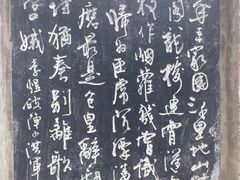 来家國三千里地山
閣龍樓連霄漢
枝作烟蘿幾曾識
歸为臣虜沈腰潘
磨最是仓皇辭
坊猶奏别離歌
宫娥 李煜破陣子 洪軍